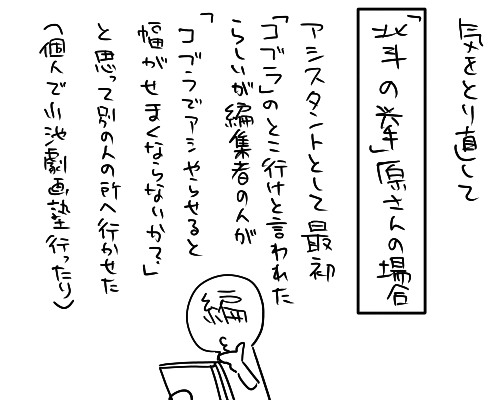 気をとり直して
「北斗の拳」原さんの場合
アシスタントとして最初
「コブラ」のとこ行けと言われた
らしいが編集者の人が
「コブラでアシやらせると
幅がせまくならないか?」
と思って別の人の所へ行かせた
(個人で小池劇画塾行ったり)
編